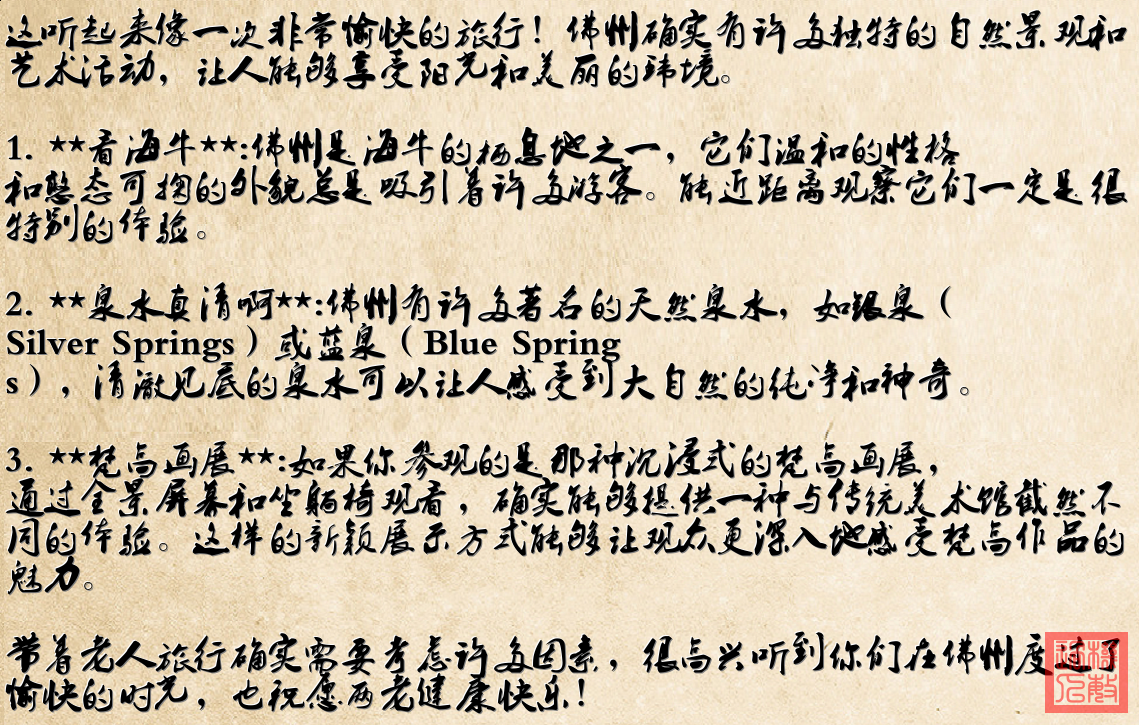 这听起来像一次非常愉快的旅行！佛州确实有许多独特的自然景观和
艺术活动，让人能够享受阳光和美丽的环境。
1. **看海牛**:佛州是海牛的栖息地之一，它们温和的性格
和憨态可掬的外貌总是吸引着许多游客。能近距离观察它们一定是很
特别的体验。
2. **泉水真清啊**:佛州有许多著名的天然泉水，如银泉（
Silver Springs）或蓝泉（Blue Spring
s），清澈见底的泉水可以让人感受到大自然的纯净和神奇。
3. **梵高画展**:如果你参观的是那种沉浸式的梵高画展，
通过全景屏幕和坐躺椅观看，确实能够提供一种与传统美术馆截然不
同的体验。这样的新颖展示方式能够让观众更深入地感受梵高作品的
魅力。
带着老人旅行确实需要考虑许多因素，很高兴听到你们在佛州度过了
愉快的时光，也祝愿两老健康快乐！